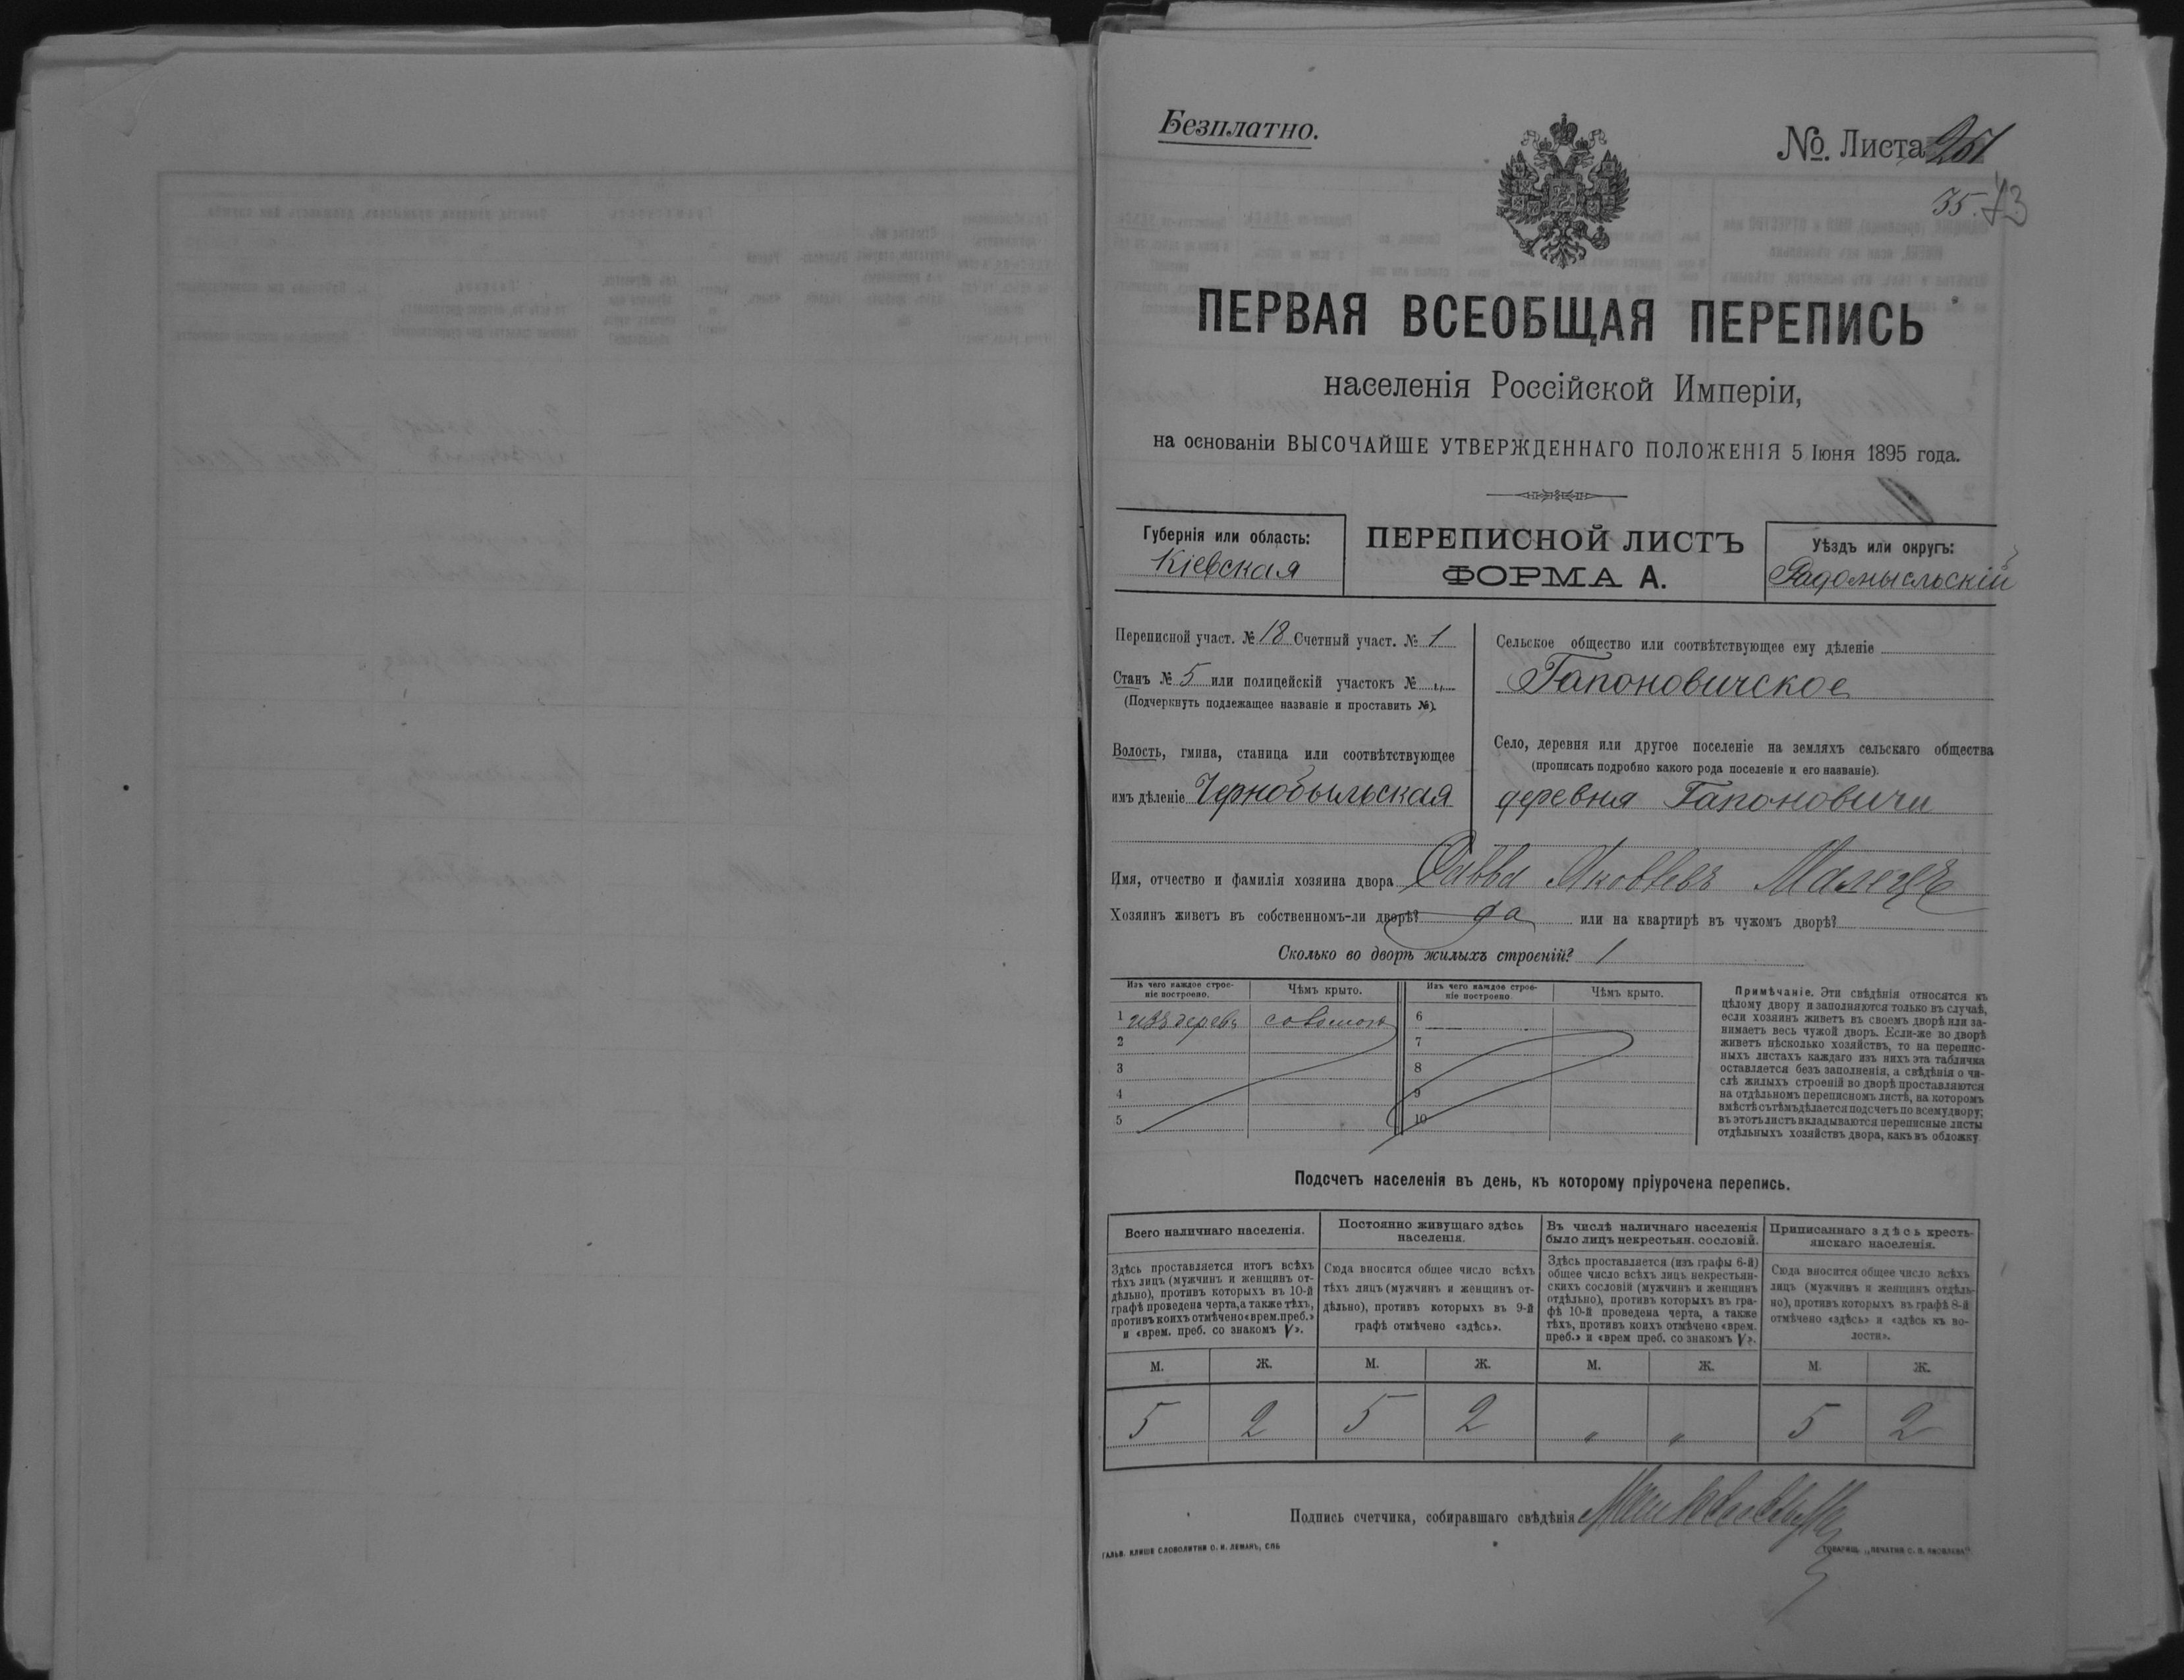 Безплатно.
№. Листа 251
35. 73
ПЕРВАЯ ВСЕОБЩАЯ ПЕРЕПИСЬ
населенія Россійской Имперіи,
на основаніи ВЫСОЧАЙШЕ УТВЕРЖДЕННАГО ПОЛОЖЕНІЯ 5 Іюня 1895 года.
Губернія или область:
Кіевская
ПЕРЕПИСНОЙ ЛИСТЪ
ФОРМА А.
Уѣздъ или округъ:
Радомысльскій
Переписной участ. № 18 Счетный участ. № 1
Станъ № 5 или полицейскій участокъ № „
(Подчеркнуть подлежащее названіе и проставить №).
Волость, гмина, станица или соотвѣтствующее
имъ дѣленіе Чернобыльская
Сельское общество или соотвѣтствующее ему дѣленіе
Гапоновичское
Село, деревня или другое поселеніе на земляхъ сельскаго общества
(прописать подробно какого рода поселеніе и его названіе).
деревня Гапоновичи
Имя, отчество и фамилія хозяина двора Савва Яковлевъ Малецъ
Хозяинъ живетъ въ собственномъ-ли дворѣ? да или на квартирѣ въ чужомъ дворѣ?
Сколько во дворѣ жилыхъ строеній? 1
Изъ чего каждое строе-
ніе построено.
Чѣмъ крыто.
Изъ чего каждое строе-
ніе построено
Чѣмъ крыто.
1 изъ дерева соломою
2
3
4
5
6
7
8
9
10
Примѣчаніе. Эти свѣдѣнія относятся къ
цѣлому двору и заполняются только въ случаѣ,
если хозяинъ живетъ въ своемъ дворѣ или за-
нимаетъ весь чужой дворъ. Если-же во дворѣ
живетъ нѣсколько хозяйствъ, то на перепис-
ныхъ листахъ каждаго изъ нихъ эта табличка
оставляется безъ заполненія, а свѣдѣнія о чи-
слѣ жилыхъ строеній во дворѣ проставляются
на отдѣльномъ переписномъ листѣ, на которомъ
вмѣстѣ съ тѣмъ дѣлается подсчетъ по всему двору;
въ этотъ листъ вкладываются переписные листы
отдѣльныхъ хозяйствъ двора, какъ въ обложку.
Подсчетъ населенія въ день, къ которому пріурочена перепись.
Всего наличнаго населенія.
Здѣсь проставляется итогъ всѣхъ
тѣхъ лицъ (мужчинъ и женщинъ от-
дѣльно), противъ которыхъ въ 10-й
графѣ проведена черта, а также тѣхъ,
противъ коихъ отмѣчено «врем. преб.»
и «врем. преб. со знакомъ V».
Постоянно живущаго здѣсь
населенія.
Сюда вносится общее число всѣхъ
тѣхъ лицъ (мужчинъ и женщинъ от-
дѣльно), противъ которыхъ въ 9-й
графѣ отмѣчено «здѣсь».
Въ числѣ наличнаго населенія
было лицъ некрестьян. сословій.
Здѣсь проставляется (изъ графы 6-й)
общее число всѣхъ лицъ некрестьян-
скихъ сословій (мужчинъ и женщинъ
отдѣльно), противъ которыхъ въ гра-
фѣ 10-й проведена черта, а также
тѣхъ, противъ коихъ отмѣчено «врем.
преб.» и «врем преб. со знакомъ V».
Приписаннаго здѣсь кресть-
янскаго населенія.
Сюда вносится общее число всѣхъ
лицъ (мужчинъ и женщинъ отдѣль-
но), противъ которыхъ въ графѣ 8-й
отмѣчено «здѣсь» и «здѣсь къ во-
лости».
М. Ж. М. Ж. М. Ж. М. Ж.
5 2 5 2 „ „ 5 2
Подпись счетчика, собиравшаго свѣдѣнія
ГАЛЬВ. КЛИШЕ СЛОВОЛИТНИ О. И. ЛЕМАНЪ, СПБ
ТОВАРИЩ. „ПЕЧАТНЯ С. П. ЯКОВЛЕВА“